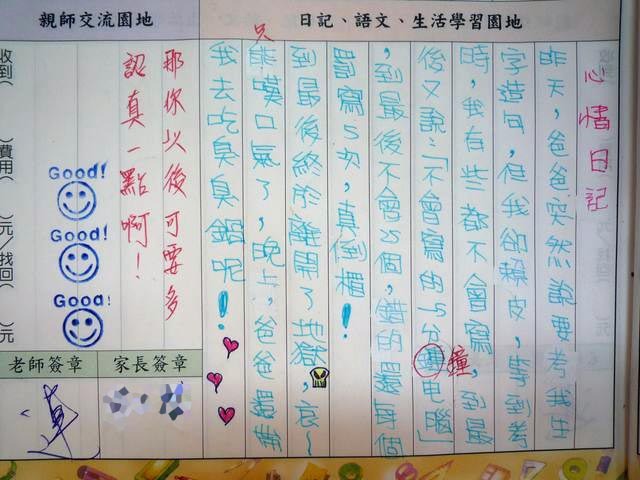 親師交流園地
日記、語文、生活學習園地
心情日記
昨天,爸爸突然說要考我生
字造句,但我卻賴皮,等到考
時,我有些都不會寫,到最
後又說:「不會寫的5分鐘电腦」
,到最後不會25個,錯的還每個
罰寫5次,真倒楣!
到最後終於離開了地獄,哀~
只能嘆口氣了,晚上,爸爸還帶
我去吃臭臭鍋呢!
那你以後可要多
認真一點啊!
Good!
Good!
Good!
收到( )費用( )元/找回( )元
老師簽章
家長簽章